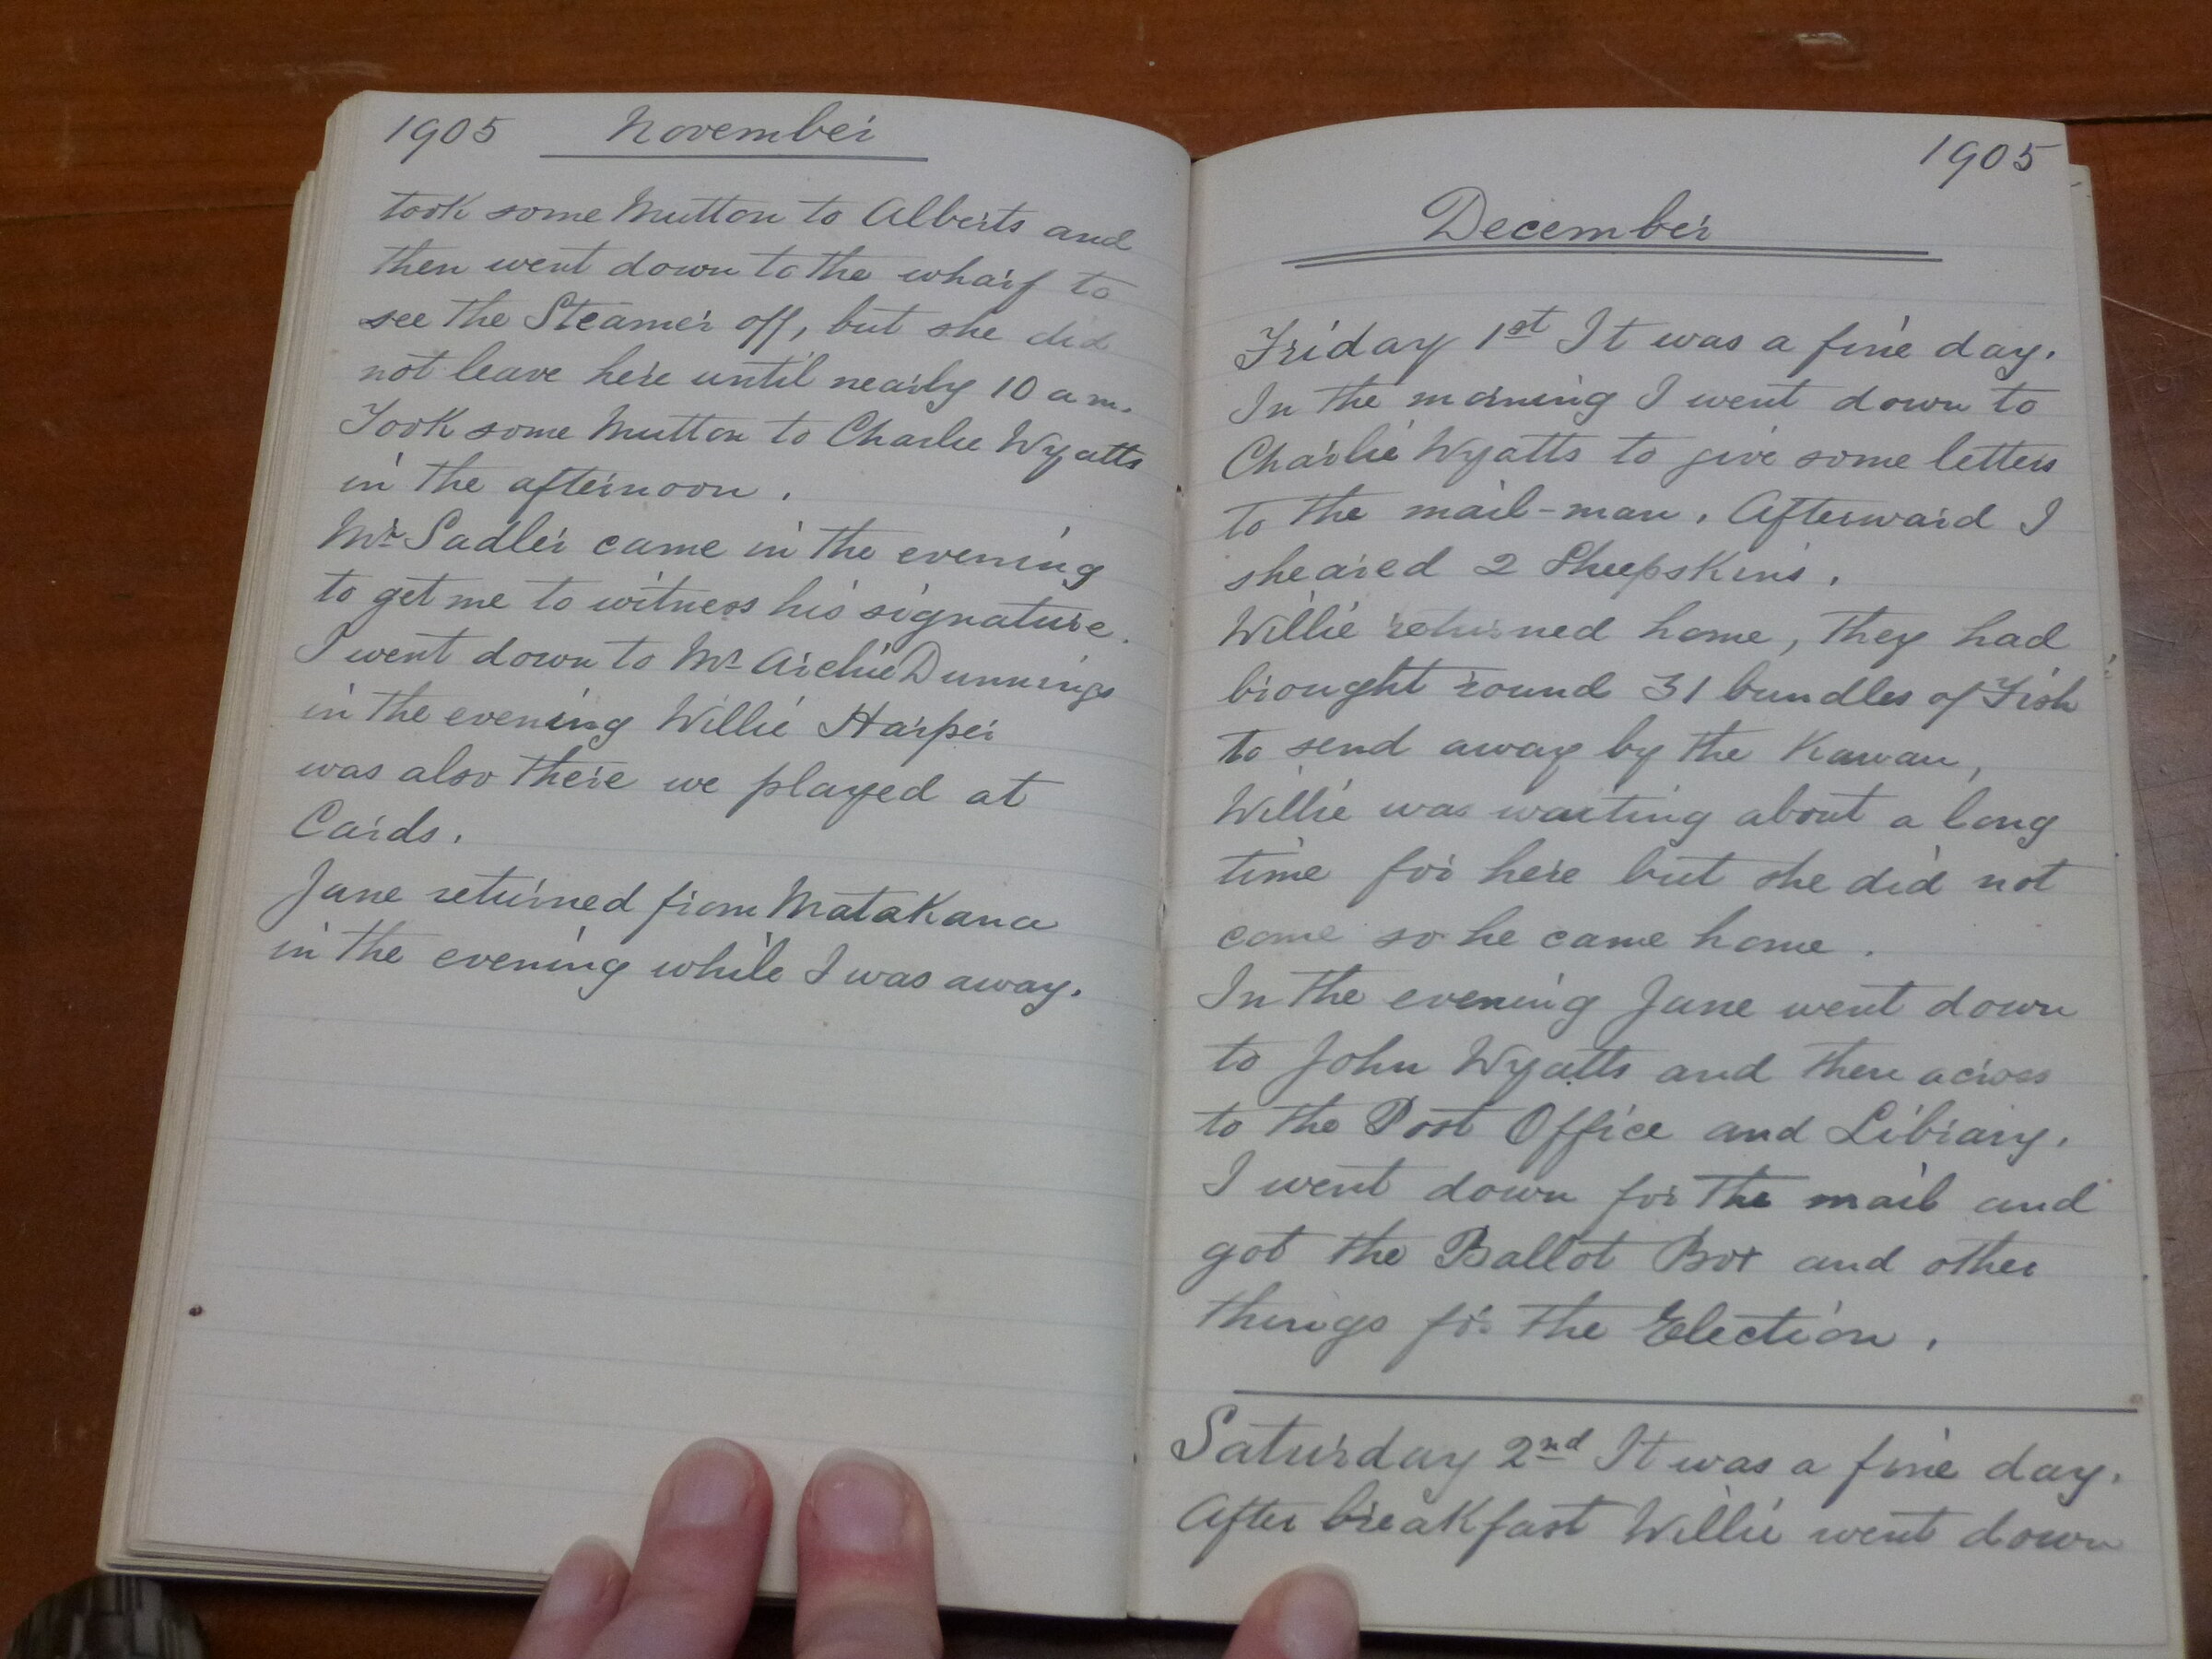 1905 November
took some Mutton to Alberts and
then went down to the wharf to
see the Steamer off, but she did
not leave here until nearly 10 am.
Took some Mutton to Charlie Wyatts
in the afternoon.
Mr Sadler came in the evening
to get me to witness his signature.
I went down to Mr Archie Dunnings
in the evening Willie Harper
was also there we played at
Cards.
Jane returned from Matakana
in the evening while I was away.
1905
December
Friday 1st It was a fine day.
In the morning I went down to
Charlie Wyatts to give some letters
to the mail-man. Afterward I
sheared 2 Sheepskins.
Willie returned home, they had
brought round 31 bundles of Fish
to send away by the Kawau,
Willie was waiting about a long
time for here but she did not
come so he came home.
In the evening Jane went down
to John Wyatts and then across
to the Post Office and Library.
I went down for the mail and
got the Ballot Box and other
things for the Election.
Saturday 2nd It was a fine day.
After breakfast Willie went down